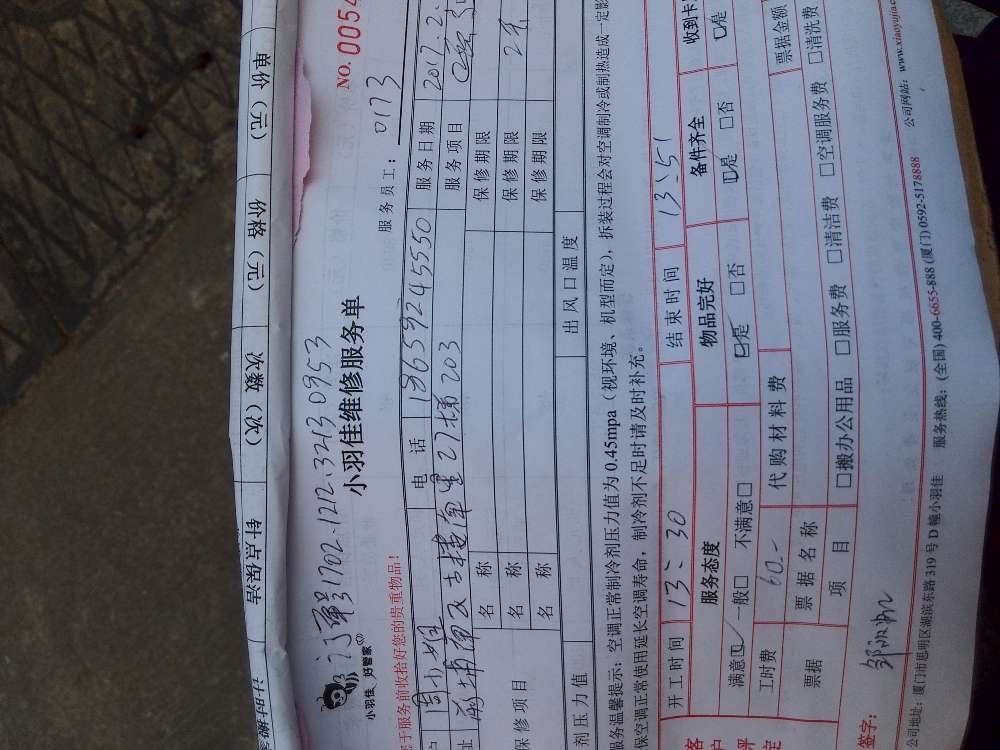 单价（元） 价格（元） 次数（次） 针点保洁
NO. 0054
1702.1212.3213.0953
小羽佳 好管家
小羽佳维修服务单
服务员工： 0173
于服务前收拾好您的贵重物品！
周小姐 电 话 18659245550 服务日期 2017.2.
前埔南区 27梯203 服务项目
保修项目 名 称 保修期限
名 称 保修期限
名 称 保修期限
剂压力值 出风口温度
服务温馨提示：空调正常制冷剂压力值为0.45mpa（视环境、机型而定），拆装过程会对空调制冷或制热造成一定影
保空调正常使用延长空调寿命，制冷剂不足时请及时补充。
开工时间 13：30 结束时间 13：51
服务态度 物品完好 备件齐全 收到卡
满意☑ 一般□ 不满意□ ☑是 □否 ☑是 □否 □是
工时费 60- 代购材料费 票据金额
票据 票据名称
项 目 □搬办公用品 □服务费 □清洁费 □空调服务费 □清洗费
签字：
公司地址：厦门市思明区湖滨东路319号D幢小羽佳 服务热线：(全国) 400-6655-888 (厦门) 0592-5178888 公司网站：www.xiaoyujia.c